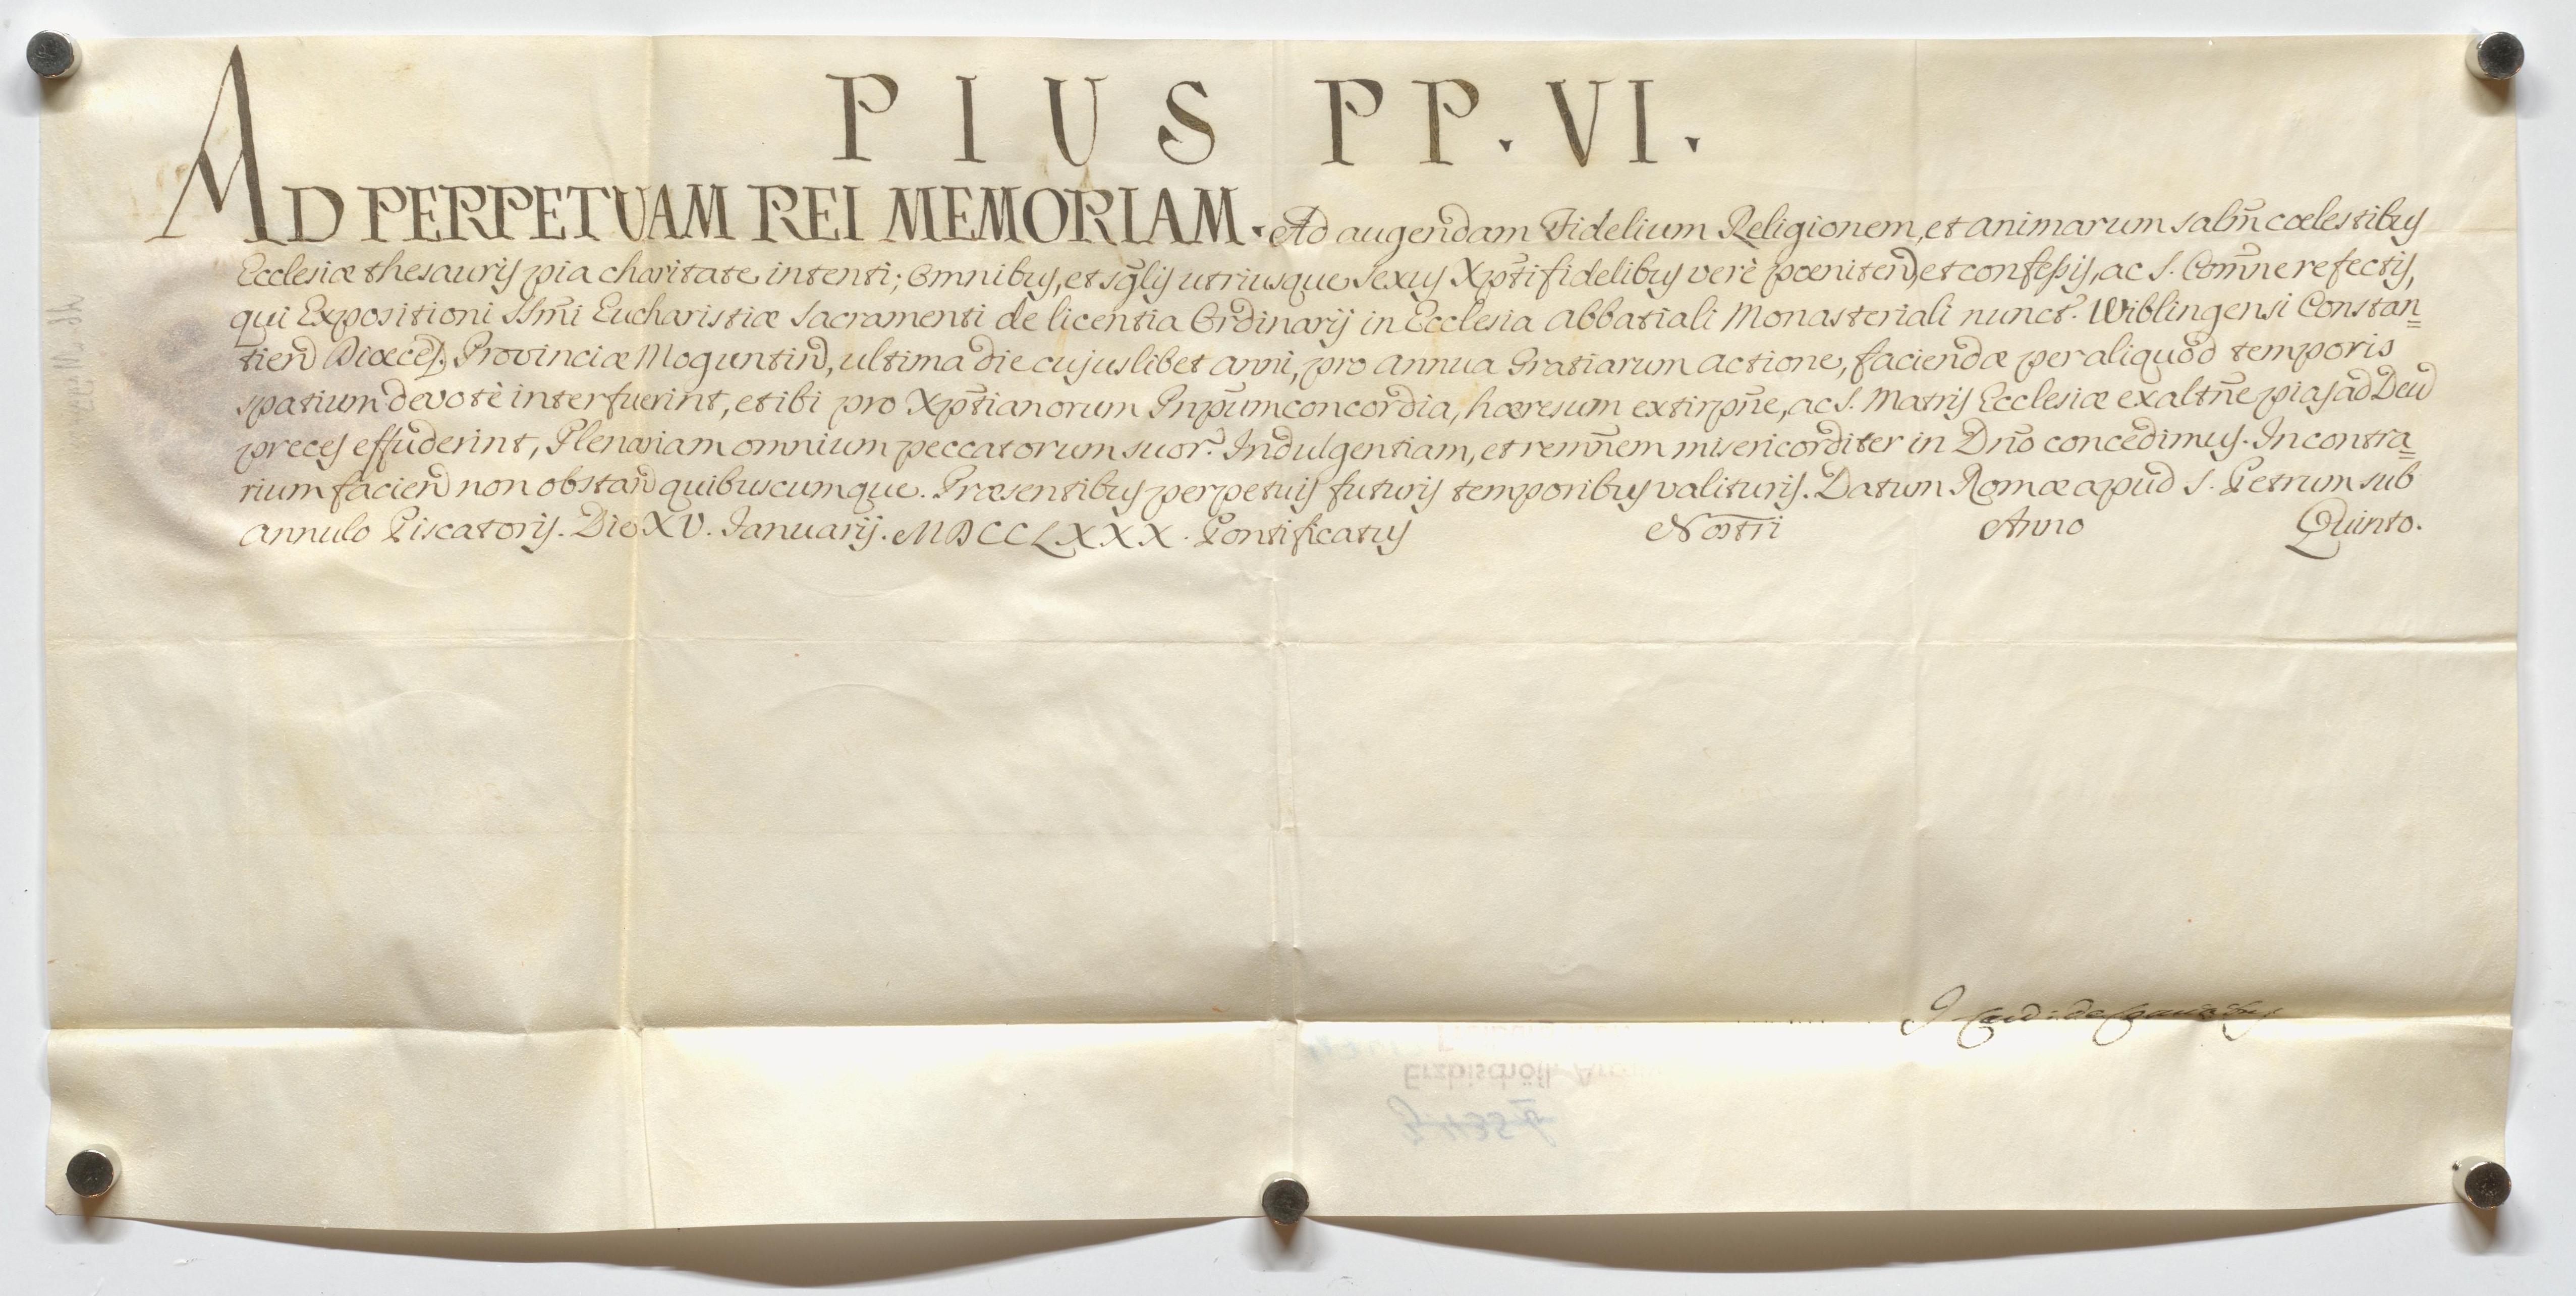 PIUS PP. VI.
AD PERPETUAM REI MEMORIAM. Ad augendam Fidelium Religionem, et animarum salm̃ cœlestibus
Ecclesiæ thesauris pia charitate intenti; Omnibus, et sg̃lis utriusque sexus Xpti̅fidelibus verè pœniteñ, et confessis, ac S. Com̃ne refectis,
qui Expositioni SSm̃i Eucharistiæ Sacramenti de licentia Ordinarij in Ecclesia Abbatiali Monasteriali nunct. Wiblingensi Constan=
tien Diœces. Provinciæ Moguntin, ultima die cujuslibet anni, pro annua Gratiarum actione, faciendæ per aliquod temporis
spatium devotè interfuerint, et ibi pro Xpt̃ianorum Pnpũm concordia, hæresum extirpñe, ac S. Matris Ecclesiæ exaltñe pias ad Deũ
preces effuderint, Plenariam omnium peccatorum suor. Indulgentiam, et remñem misericorditer in Dño concedimus. In contra=
rium facien non obstan quibuscumque. Præsentibus perpetuis futuris temporibus valituris. Datum Romæ apud S. Petrum sub
Annulo Piscatoris. Die XV. Januarij. MDCCLXXX. Pontificatus Nostri Anno Quinto.
Erzbischöfl.